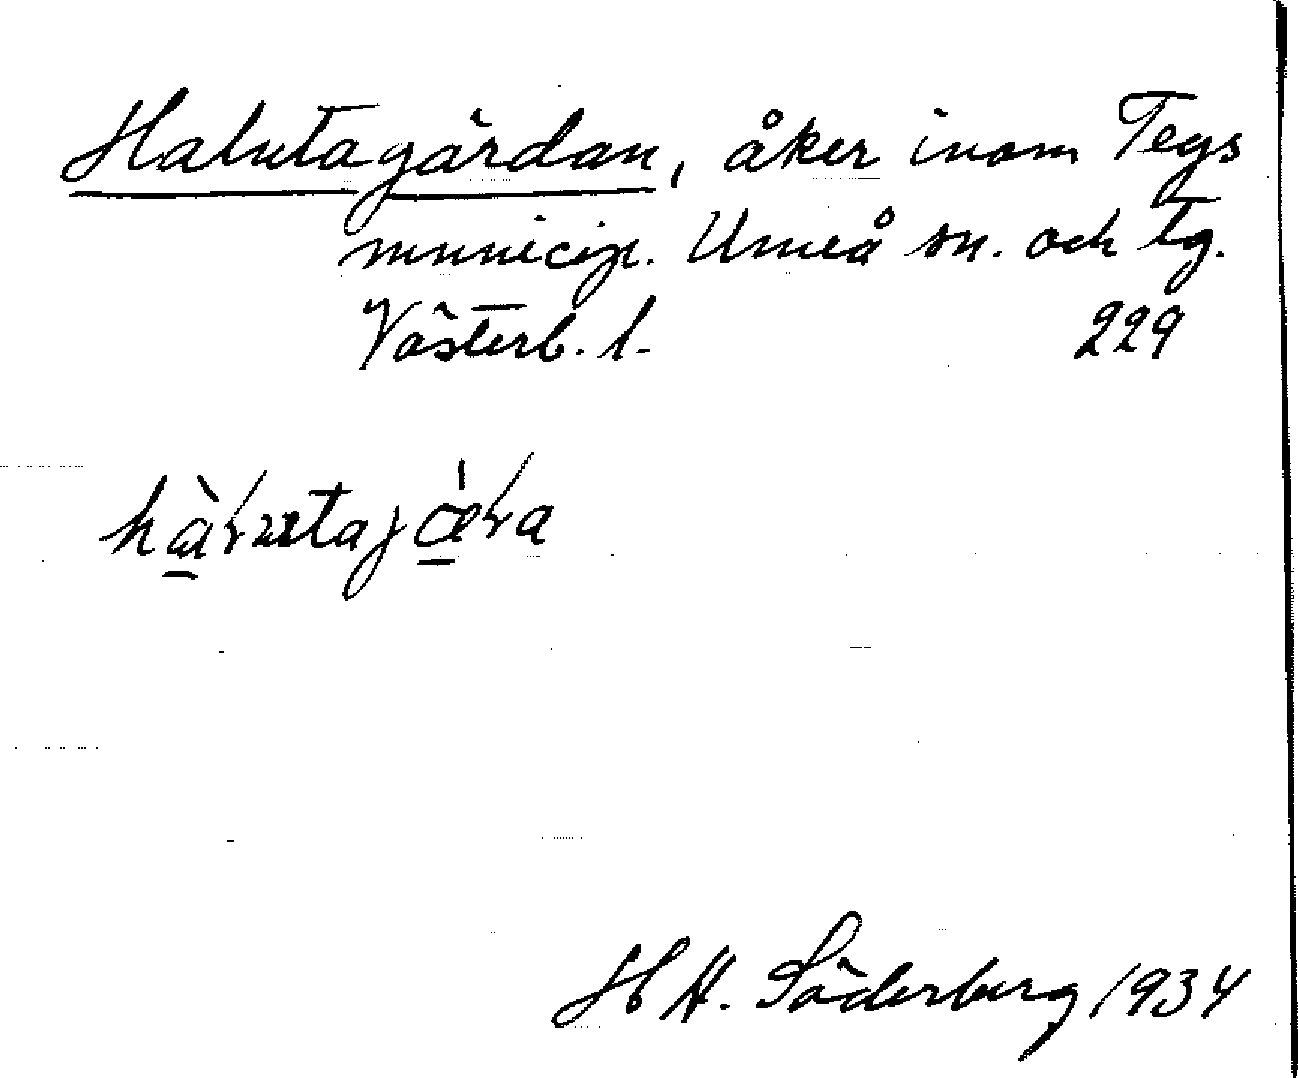 Halvtagärdan, åker inom Tegs
municip. Umeå sn. och tg.
Västerb. l. 229
H H. Söderberg 1934